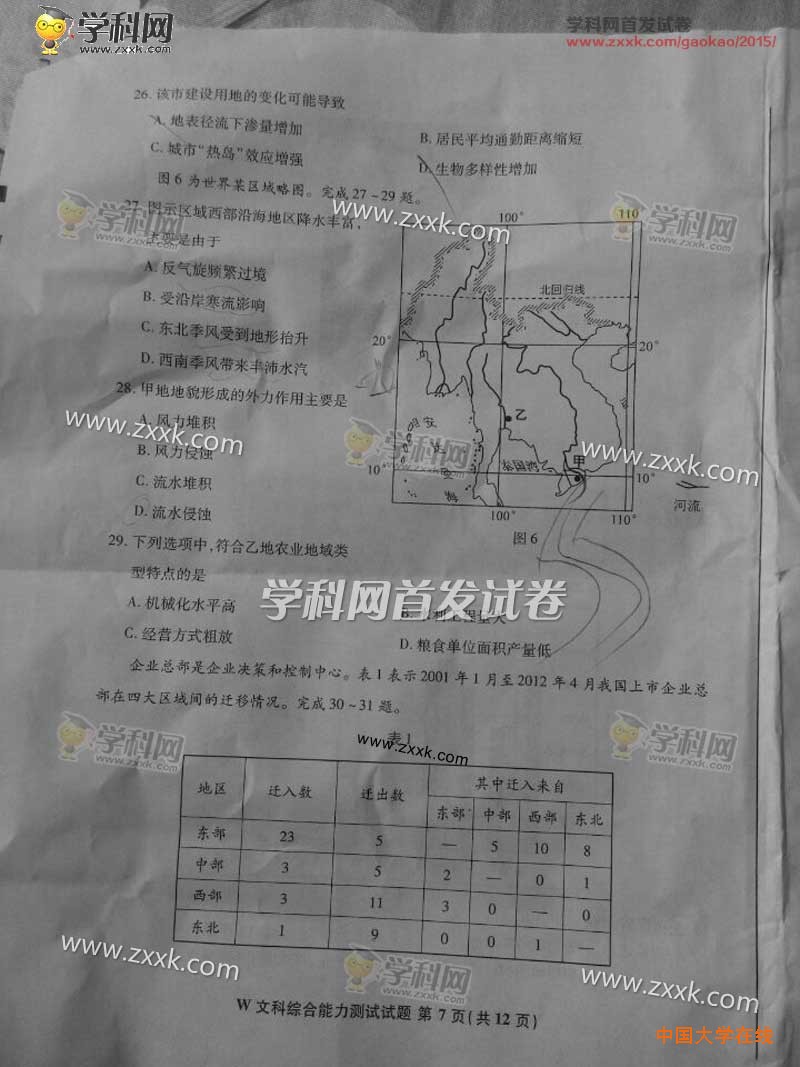 学科网
www.zxxk.com
学科网首发试卷
www.zxxk.com/gaokao/2015/
26. 该市建设用地的变化可能导致
A. 地表径流下渗量增加
B. 居民平均通勤距离缩短
C. 城市“热岛”效应增强
D. 生物多样性增加
图6为世界某区域略图。完成27~29题。
27. 图示区域西部沿海地区降水丰富，
主要是由于
A. 反气旋频繁过境
B. 受沿岸寒流影响
C. 东北季风受到地形抬升
D. 西南季风带来丰沛水汽
28. 甲地地貌形成的外力作用主要是
A. 风力堆积
B. 风力侵蚀
C. 流水堆积
D. 流水侵蚀
29. 下列选项中，符合乙地农业地域类
型特点的是
A. 机械化水平高
C. 经营方式粗放
D. 粮食单位面积产量低
100° 110
北回归线
20° 20°
乙
甲
泰国湾
10° 10°
100° 110°
河流
图6
学科网首发试卷
企业总部是企业决策和控制中心。表1表示2001年1月至2012年4月我国上市企业总
部在四大区域间的迁移情况。完成30~31题。
表1
地区 迁入数 迁出数 其中迁入来自
东部 中部 西部 东北
东部 23 5 — 5 10 8
中部 3 5 2 — 0 1
西部 3 11 3 0 — 0
东北 1 9 0 0 1 —
W 文科综合能力测试试题 第7页(共12页)
www.zxxk.com
学科网
www.zxxk.com
中国大学在线